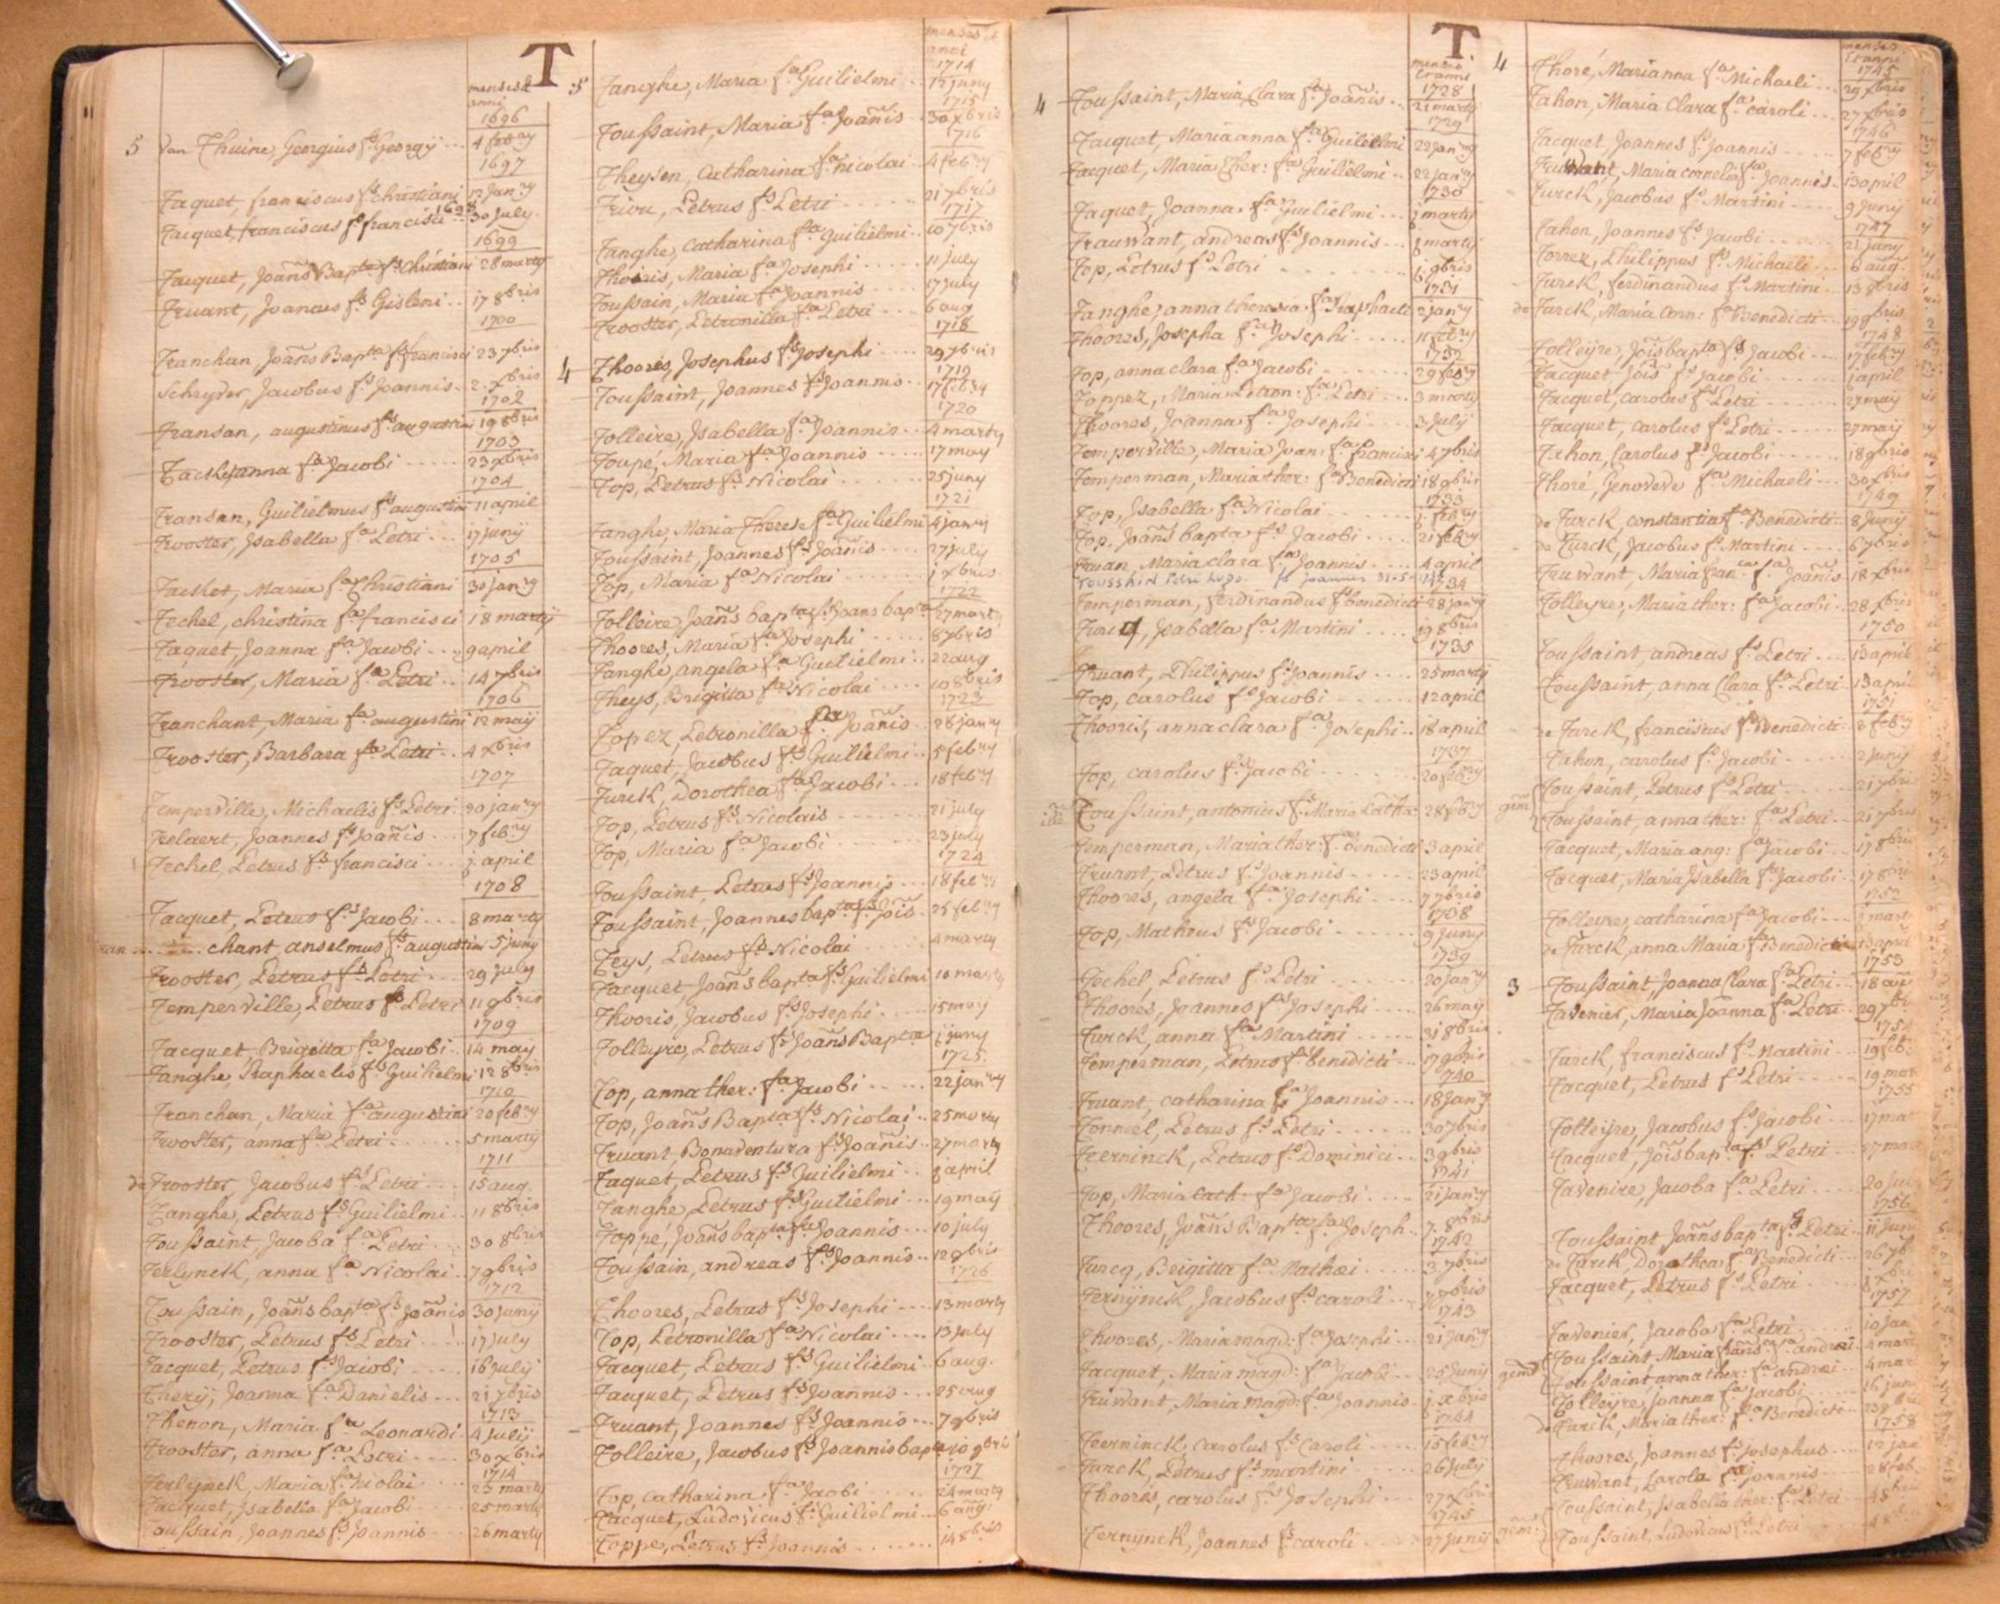 T
menses et anni
1696
5 van Thuine, Georgius fs Georgÿ 4 febry
1697
Taquet, franciscus fs Christiani 12 Janry
1698
Tacquet, franciscus fs francisci 30 July
1699
Tacquet, Joañs Bapta fs Christiani 28 marty
Truant, Joannes fs Gisleni 17 8bris
1700
Tranchan Joañs Bapta fs francisci 23 7bris
Schryver, Jacobus fs Joannis 2 xbris
1702
Transan, augustinus fs augustini 19 8bris
1703
Tacket anna fa Jacobi 23 xbris
1704
Transan, Guilielmus fs augustini 11 april
Trooster, Isabella fa Petri 17 junÿ
1705
Tacket, Maria fa Christiani 30 janry
Techel, christina fa francisci 18 martÿ
Taquet, Joanna fa Jacobi 9 april
Trooster, Maria fa Petri 14 7bris
1706
Tranchant, Maria fa augustini 12 maÿ
Trooster, Barbara fa Petri 4 xbris
1707
Temperville, Michaelis fs Petri 20 janry
Trelaert, Joannes fs Joañis 7 febry
Techel, Petrus fs francisci j april
1708
Tacquet, Petrus fs Jacobi 8 marty
chant anselmus fs augustini 5 juny
Trooster, Petrus fs Petri 29 july
Temperville, Petrus fs Petri 11 9bris
1709
Tacquet, Brigitta fa Jacobi 14 may
Tanghe, Raphaelis fs Guilielmi 12 8bris
1710
Tranchan, Maria fa augustini 20 febry
Trooster, anna fa Petri 5 martÿ
1711
de Trooster, Jacobus fs Petri 15 aug
Tanghe, Petrus fs Guilielmi 11 8bris
Toussaint, Jacoba fa Petri 30 8bris
Terlynck, anna fa Nicolai 7 9bris
1712
Toussain, Joañs bapta fs Joañis 30 junÿ
Trooster, Petrus fs Petri 17 July
Tacquet, Petrus fs Jacobi 16 july
Thery, Joanna fa Danielis 21 7bris
1713
Thenon, Maria fa Leonardi 4 Julÿ
Trooster, anna fa Petri 30 xbris
1714
Terlynck, Maria fa Nicolai 23 marty
Tacquet, Isabella fa Jacobi 25 marty
Toussain, Joannes fs Joannis 26 marty
menses et anni
1714
5 Tanghe, Maria fa Guilielmi 12 juny
1715
Toussaint, Maria fa Joañis 30 xbris
1716
Theysen, Catharina fa Nicolai 4 febry
Trivu, Petrus fs Petri 21 7bris
1717
Tanghe, Catharina fa Guilielmi 10 7bris
Thooris, Maria fa Josephi 11 July
Toussain, Maria fa Joannis 17 july
Trooster, Petronilla fa Petri 6 aug
1718
4 Thoores, Josephus fs Josephi 29 7bris
1719
Toussaint, Joannes fs Joannis 17 febry
1720
Tolleire, Isabella fa Joannis 4 marty
Toupé, Maria fa Joannis 17 may
Top, Petrus fs Nicolai 25 juny
1721
Tanghe, Maria Theres: fa Guilielmi 4 janry
Toussaint, Joannes fs Joañis 27 july
Top, Maria fa Nicolai j xbris
1722
Tolleire Joañs bapta fs Joans bapta 27 marty
Thoores, Maria fa Josephi 8 7bris
Tanghe angela fa Guilielmi 22 aug
Theys, Brigitta fa Nicolai 10 8bris
1723
Topez, Petronilla fa Joañis 28 janry
Taquet, Jacobus fs Guilielmi 5 febry
Turck, Dorothea fa Jacobi 18 febry
Top, Petrus fs Nicolais 21 july
Top, Maria fa Jacobi 23 july
1724
Toussaint, Petrus fs Joannis 18 febry
Toussaint, Joannes bapta fs Jois 25 febry
Teys, Petrus fs Nicolai 4 marty
Tacquet, Joañs bapta fs Guilielmi 10 marty
Thooris, Jacobus fs Josephi 15 may
Tolleyre, Petrus fs Joañs Bapta j juny
1725
Top, anna ther: fa Jacobi 22 janry
Top, Joañs Bapta fs Nicolai 25 marty
Truant, Bonaventura fs Joañis 27 marty
Taquet, Petrus fs Guilielmi 8 april
Tanghe, Petrus fs Guilielmi 19 maÿ
Toppé, Joañs bapta fs Joannis 10 july
Toussain, andreas fs Joannis 12 9bris
1726
Thoores, Petrus fs Josephi 13 marty
Top, Petronilla fa Nicolai 13 July
Tacquet, Petrus fs Guilielmi 6 aug
Tacquet, Petrus fs Joannis 25 aug
Truant, Joannes fs Joannis 7 9bris
Tolleire, Jacobus fs Joannis bapta 10 9bri
1727
Top, catharina fa Jacobi 24 marty
Tacquet, Ludovicus fs Guilielmi 6 aug
Toppe, Petrus fs Joannis 14 8bris
T.
menses et anni
1728
4 Toussaint, Maria Clara fa Joañis 21 marty
1729
Tacquet, Maria anna fa Guilielmi 22 janry
Tacquet, Maria Ther: fa Guilielmi 22 janry
1730
Taquet, Joanna fa Guilielmi j marty
Trauwant, andreas fs Joannis j marty
Top, Petrus fs Petri j 9bris
1731
Tanghe, anna theresia fa Raphaeli 2 janry
Thoores, Josepha fa Josephi 11 febry
1732
Top, anna clara fa Jacobi 29 febry
Toppez, Maria Petron: fa Petri 3 marty
Thoores, Joanna fa Josephi 3 July
Temperville, Maria Joan: fa francisci 4 7bris
Temperman, Maria ther: fa Benedicti 18 9bris
1733
Top, Isabella fa Nicolai j febry
Top, Joañs bapta fs Jacobi 21 febry
Truan, Maria clara fa Joannis 4 april
1734
Temperman, ferdinandus fs benedicti 28 janry
Turcq, Isabella fa Martini 19 8bris
1735
Truant, Philippus fs Joannis 25 martÿ
Top, carolus fs Jacobi 12 april
Thooris, anna clara fa Josephi 18 april
1737
Top, carolus fs Jacobi 20 febry
Toussaint, antonius fs Maria Catha: 28 febry
Temperman, Maria ther: fa benedicti 3 april
Truant, Petrus fs Joannis 23 april
Thoores, angela fa Josephi 7 7bris
1738
Top, Matheus fs Jacobi 9 juny
1739
Techel, Petrus fs Petri 20 janry
Thoores, Joannes fs Josephi 26 maÿ
Turck, anna fa Martini 31 8bris
Temperman, Petrus fs benedicti 17 9bris
1740
Truant, catharina fa Joannis 18 janry
Tonniel, Petrus fs Petri 30 7bris
Teerninck, Petrus fs Dominici 3 9bris
1741
Top, Maria Cath: fa Jacobi 21 janry
Thoores, Joañs Bapta fs Joseph 7 8bris
1742
Turcq, Brigitta fa Mathæi 3 7bris
Ternynck, Jacobus fs caroli 7 7bris
1743
Thoores, Maria magd: fa Josephi 21 janry
Tacquet, Maria magd: fa Jacobi 25 Junÿ
Truwant, Maria magd: fa Joannis j xbris
1744
Teerninck, carolus fs caroli 15 febry
Turck, Petrus fs martini 26 July
Thoores, carolus fs Josephi 27 xbris
1745
Ternynck, Joannes fs caroli 27 Junÿ
menses et anni
1745
4 Thoré, Marianna fa Michaeli 29 xbris
Tahon, Maria Clara fa caroli 27 xbris
1746
Tacquet, Joannes fs Joannis 7 febry
Truwant, Maria cornelia fa Joannis 13 april
Turck, Jacobus fs Martini 9 junÿ
1747
Tahon, Joannes fs Jacobi 21 juny
Torrez, Philippus fs Michaeli 6 aug
Turck, ferdinandus fs Martini 13 8bris
de Turck, Maria Corn: fa benedicti 19 9bris
1748
Tolleÿre, Jois bapta fs Jacobi 17 febry
Tacquet, Jois fs Jacobi j april
Tacquet, carolus fs Petri 27 maÿ
Tacquet, carolus fs Petri 27 maÿ
Tahon, Carolus fs Jacobi 18 9bris
Thoré, Genoveve fa Michaeli 30 xbris
1749
de Turck, constantia fa Benedicti 8 Junÿ
de Turck, Jacobus fs Martini 6 7bris
Truwant, Maria fran:ca fa Joañis 18 xbris
Tolleyre, Maria ther: fa Jacobi 28 xbris
1750
Toussaint, andreas fs Petri 13 april
Toussaint, anna Clara fa Petri 13 april
1751
de Turck, franciscus fs Benedicti 8 febry
Tahon, carolus fs Jacobi 2 juny
Toussaint, Petrus fs Petri 21 7bris
gem: Toussaint, anna ther: fa Petri 21 7bris
Tacquet, Maria ang: fa Jacobi 17 8bris
Tacquet, Maria Isabella fa Jacobi 17 8bris
1752
Tolleyre, catharina fa Jacobi j mart
de Turck, anna Maria fa Benedicti 13 april
1753
3 Toussaint, Joanna Clara fa Petri 18 apr
Tavenier, Maria Joanna fa Petri 29 7bri
1754
Turck, franciscus fs Martini 19 feb
Tacquet, Petrus fs Petri 19 mar
1755
Tolleÿre, Jacobus fs Jacobi 17 mar
Tacquet, Jois bapta fs Petri 27 mar
Tavenire, Jacoba fa Petri 20 Ju
1756
Toussaint Joañs bapta fs Petri 11 Jun
de Turck Dorothea fa Benedicti 26 7b
Tacquet, Petrus fs Petri xbris
1757
Tavenier, Jacoba fa Petri 10 Jan
gem: Toussaint, Maria fransca fa andreæ 4 mar
Toussaint, anna ther: fa andreæ 4 mar
Tolleyre, Joanna fa Jacobi 16 jun
de Turck, Maria ther: fa Benedicti
1758
Thoores, Joannes fs Josephus 12 jan
Truwant, Carola fa Joannis 28 feb
Toussaint, Isabella ther: fa Petri
gem: Toussaint, Ludovicus fs Petri